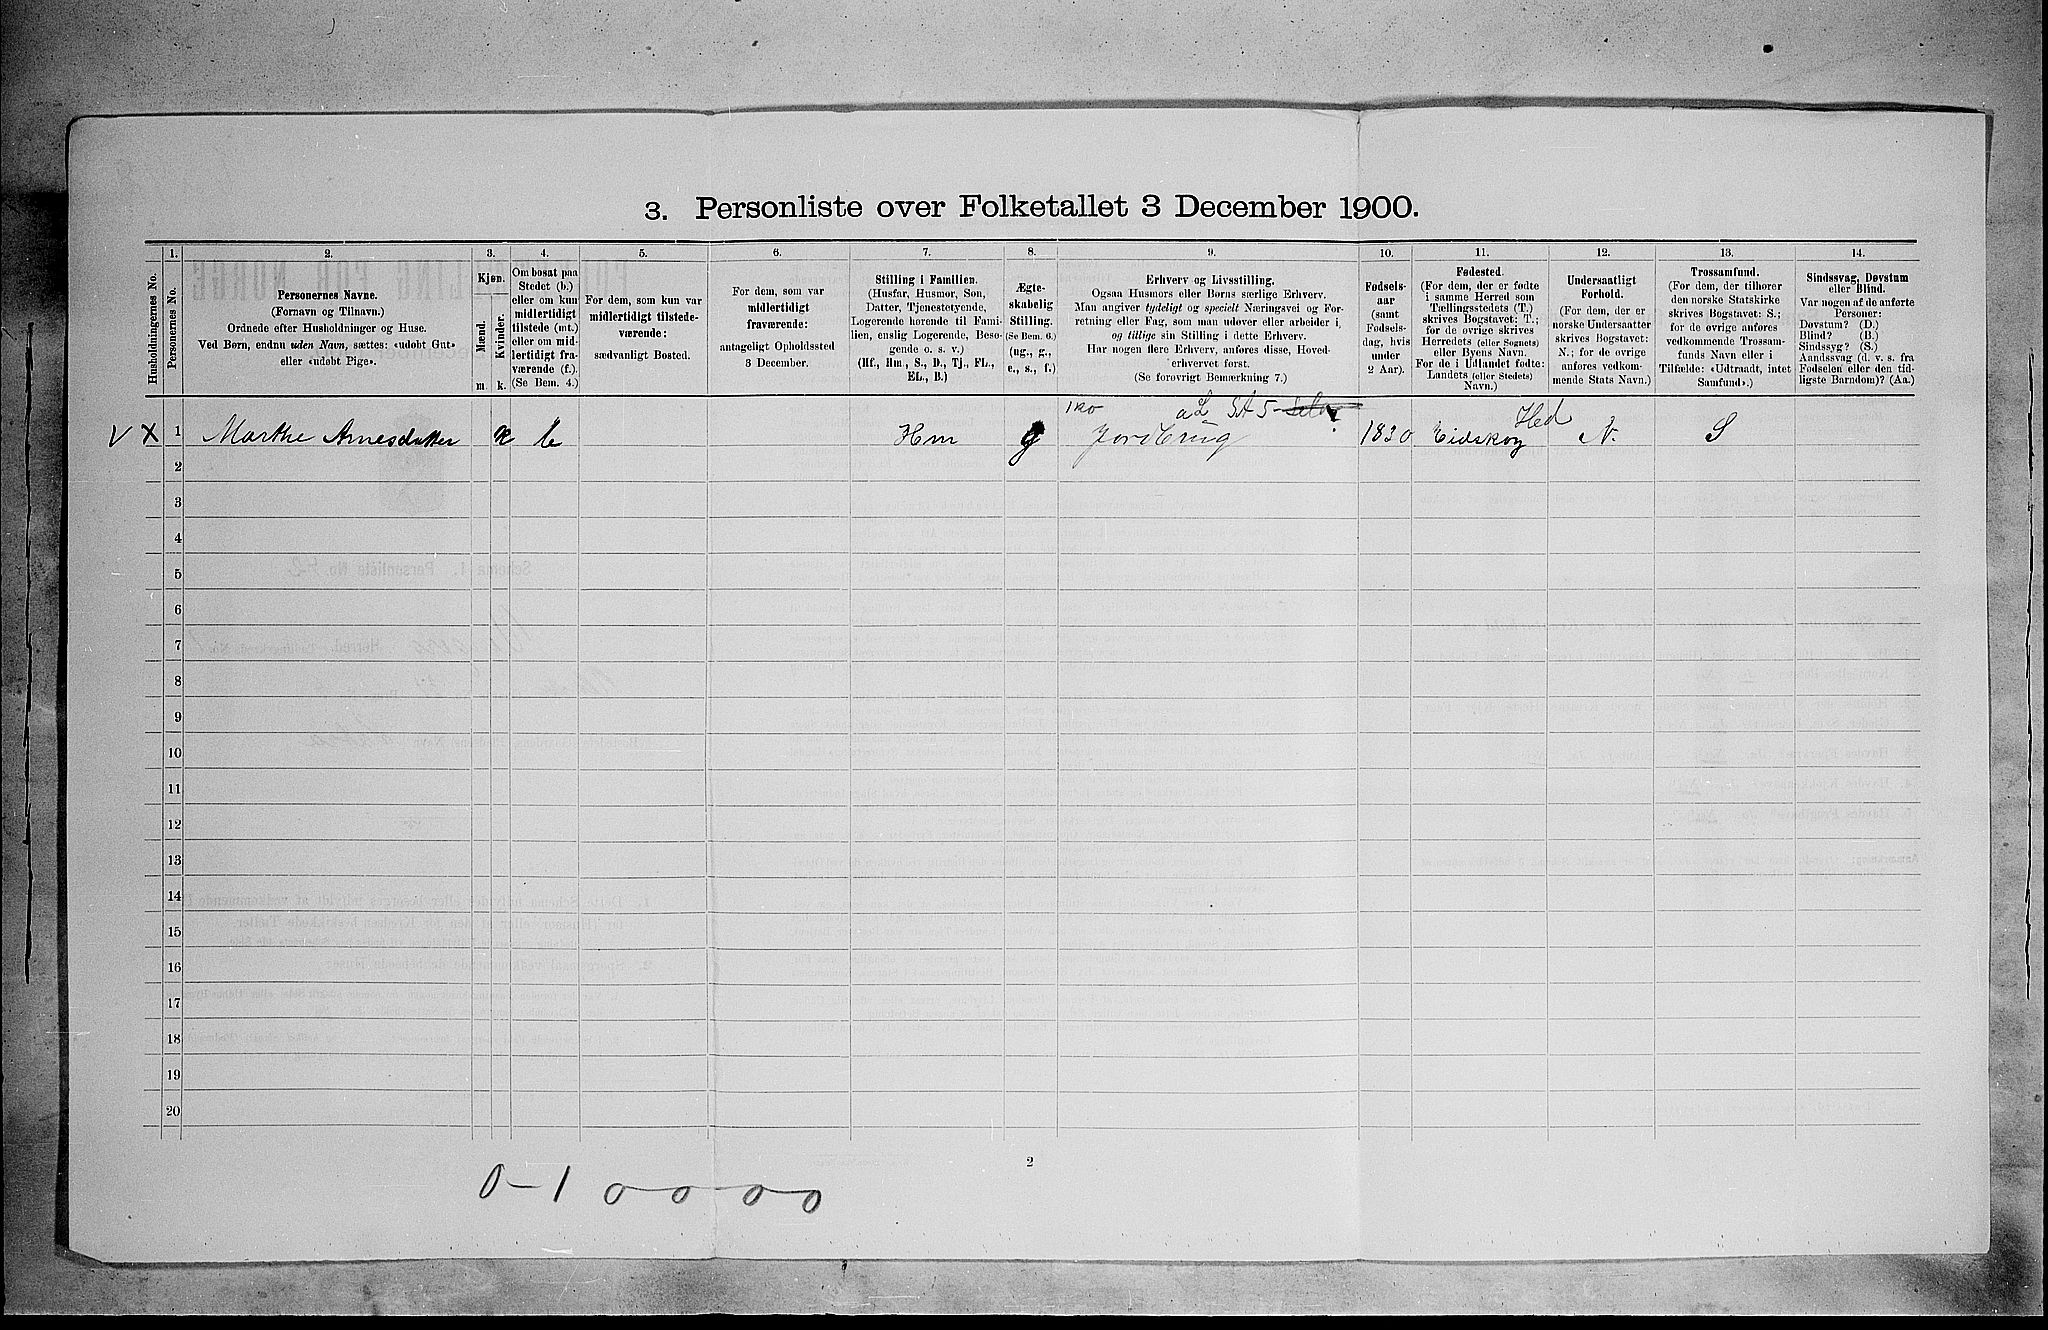 3. Personliste over Folketallet 3 December 1900.
Husholdningernes No.
1.
Personernes No.
2.
Personernes Navne.
(Fornavn og Tilnavn.)
Ordnede efter Husholdninger og Huse.
Ved Børn, endnu uden Navn, sættes: «udøbt Gut»
eller «udøbt Pige».
3.
Kjøn.
Mænd.
Kvinder.
m.
k.
4.
Om bosat paa
Stedet (b.)
eller om kun
midlertidigt
tilstede (mt.)
eller om mid-
lertidigt fra-
værende (f.).
(Se Bem. 4.)
5.
For dem, som kun var
midlertidigt tilstede-
værende:
sædvanligt Bosted.
6.
For dem, som var
midlertidigt
fraværende:
antageligt Opholdssted
3 December.
7.
Stilling i Familien.
(Husfar, Husmor, Søn,
Datter, Tjenestetyende,
Logerende hørende til Fami-
lien, enslig Logerende, Besø-
gende o. s. v.)
(Hf., Hm., S., D., Tj., FL.,
EL., B.)
8.
Ægte-
skabelig
Stilling.
(Se Bem. 6.)
(ug., g.,
e., s., f.)
9.
Erhverv og Livsstilling.
Ogsaa Husmors eller Børns særlige Erhverv.
Man angiver tydeligt og specielt Næringsvei og For-
retning eller Fag, som man udøver eller arbeider i,
og tillige sin Stilling i dette Erhverv.
Har nogen flere Erhverv, anføres disse, Hoved-
erhvervet først.
(Se forøvrigt Bemærkning 7.)
10.
Fødsels-
aar
(samt
Fødsels-
dag, hvis
under
2 Aar).
11.
Fødested.
(For dem, der er fødte
i samme Herred som
Tællingsstedets (T.)
skrives Bogstavet: T.;
for de øvrige skrives
Herredets (eller Sognets)
eller Byens Navn.
For de i Udlandet fødte:
Landets (eller Stedets)
Navn.)
12.
Undersaatligt
Forhold.
(For dem, der er
norske Undersaatter
skrives Bogstavet:
N.; for de øvrige
anføres vedkom-
mende Stats Navn.)
13.
Trossamfund.
(For dem, der tilhører
den norske Statskirke
skrives Bogstavet: S.;
for de øvrige anføres
vedkommende Trossam-
funds Navn eller i
Tilfælde: «Udtraadt, intet
Samfund».)
14.
Sindssvag, Døvstum
eller Blind.
Var nogen af de anførte
Personer:
Døvstum? (D.)
Blind? (B.)
Sindssyg? (S.)
Aandssvag (d. v. s. fra
Fødselen eller den tid-
ligste Barndom)? (Aa.)
V X 1 Marthe Arnesdatter k b Hm g Jordbrug 1830 Eidskog Hed N. S
2
3
4
5
6
7
8
9
10
11
12
13
14
15
16
17
18
19
20
2
0-1 0-0-0-0